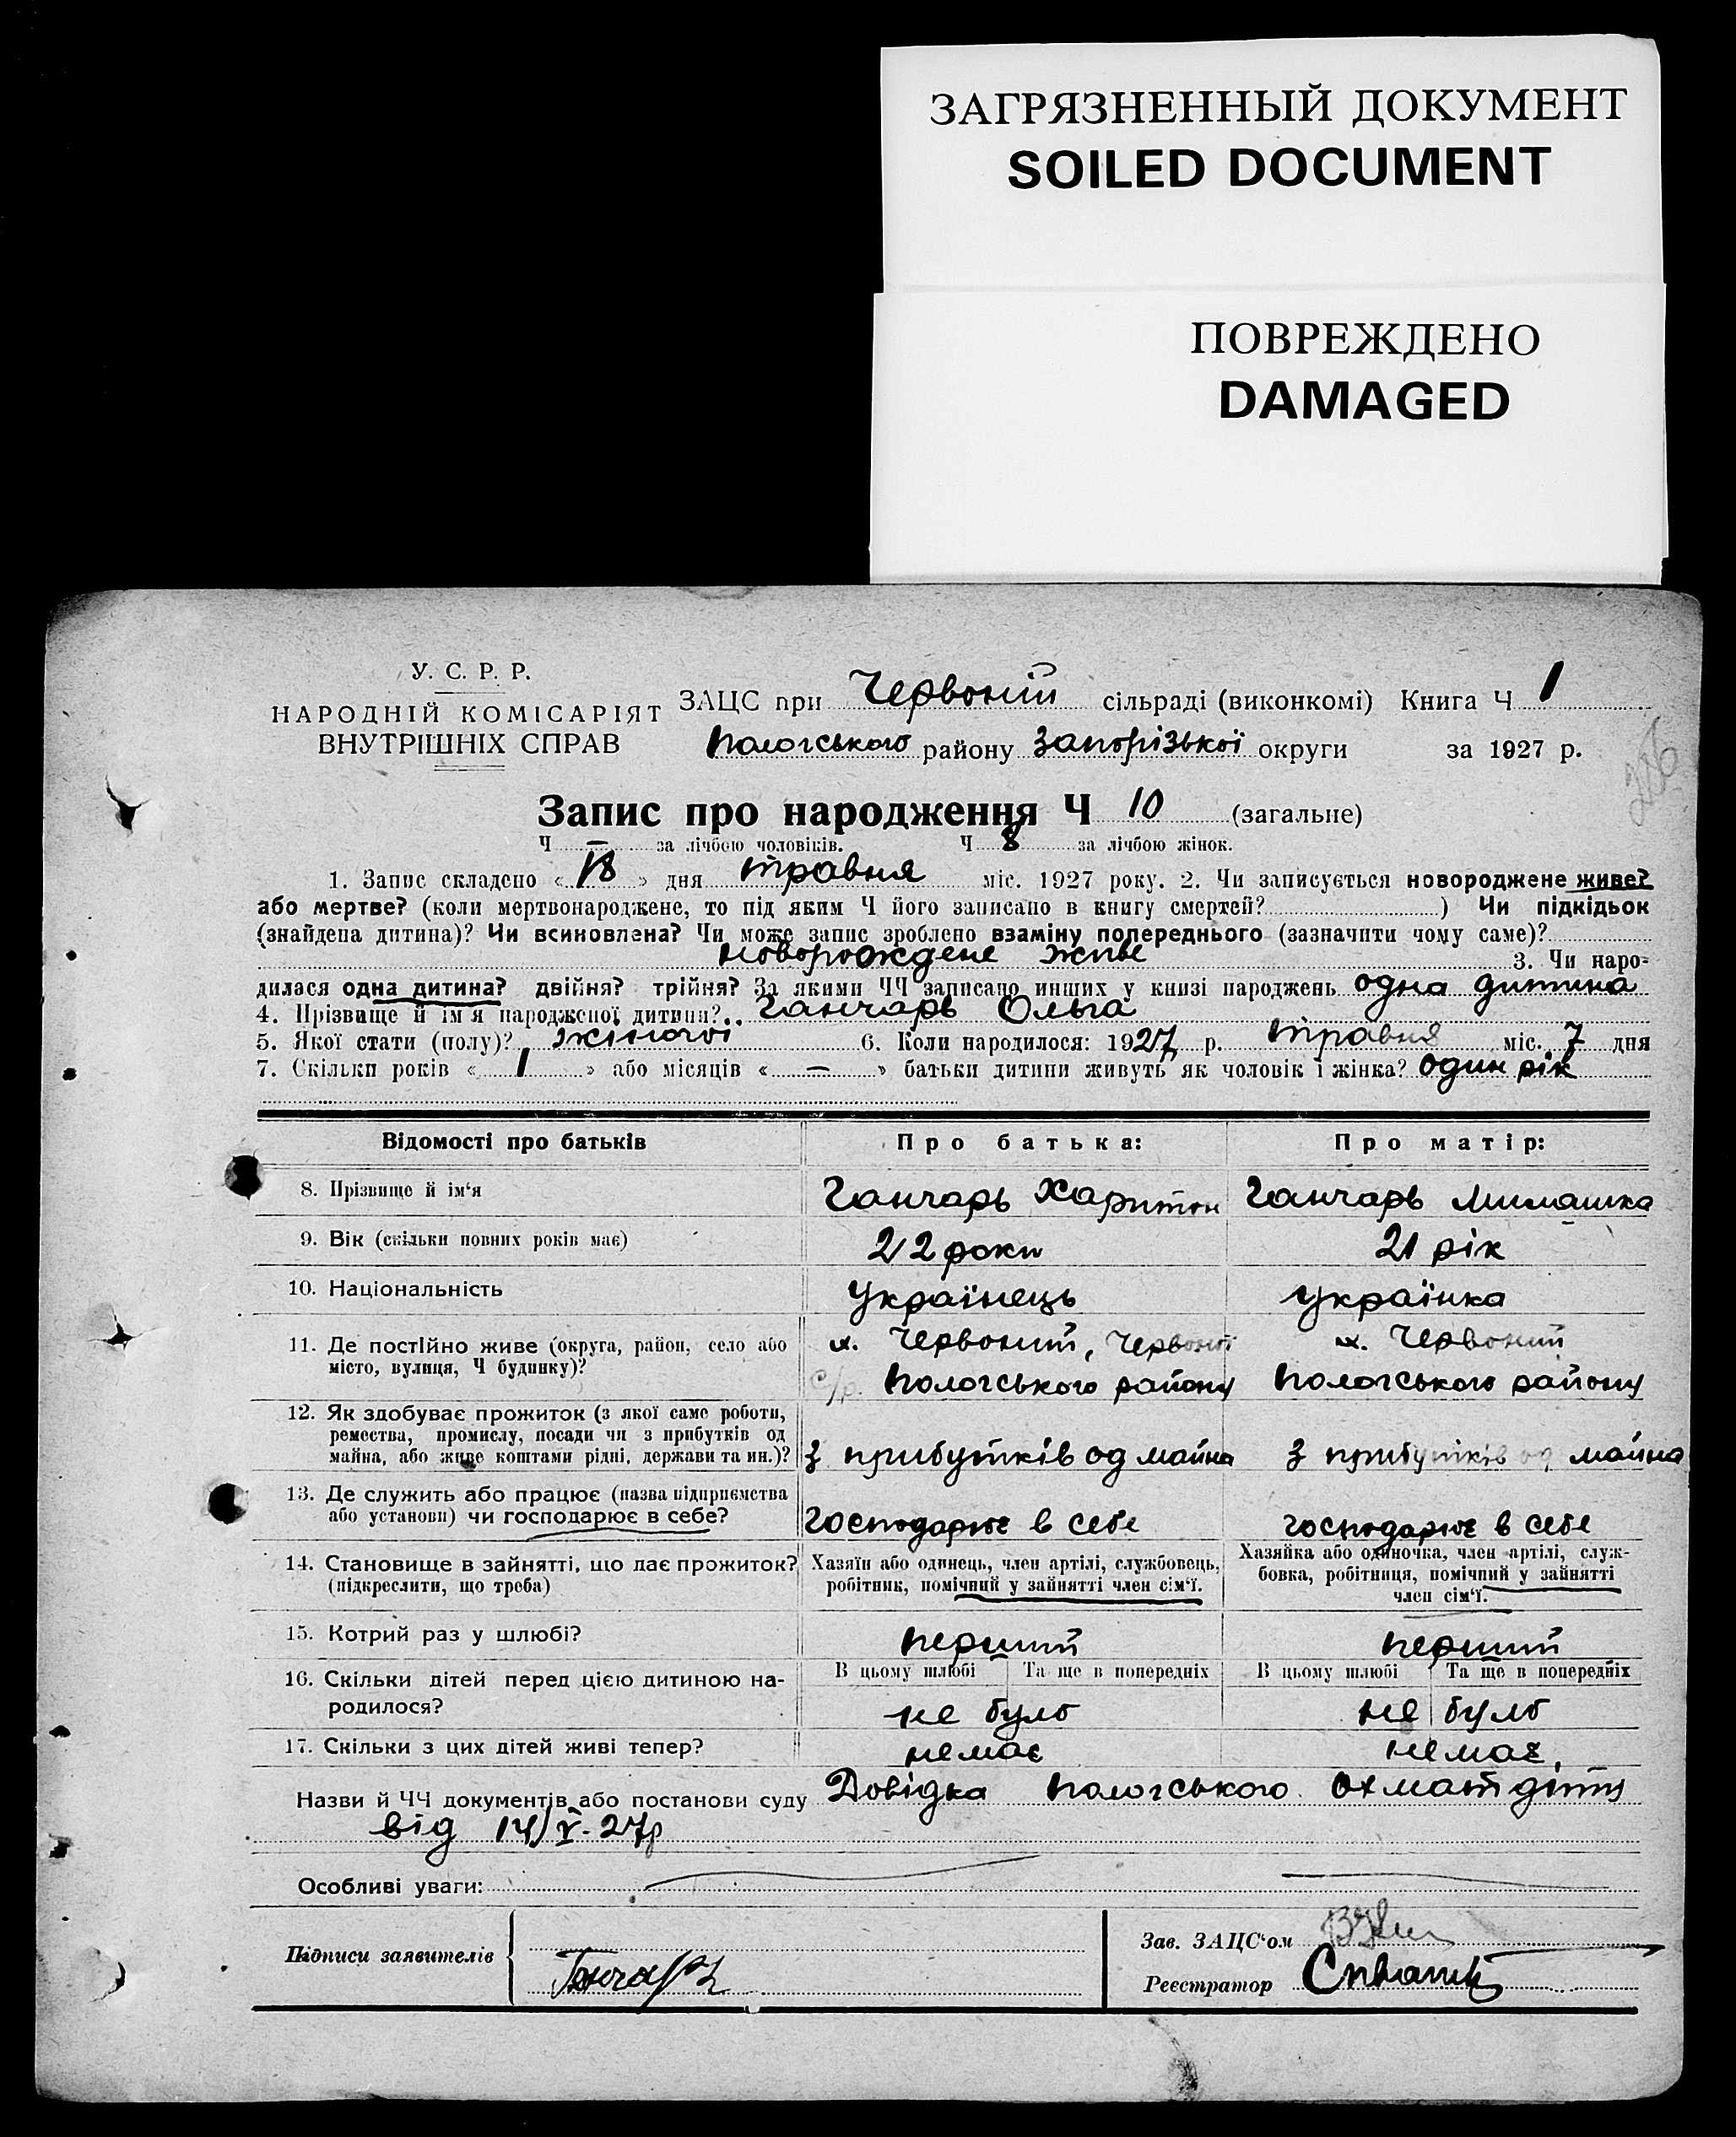 ЗАГРЯЗНЕННЫЙ ДОКУМЕНТ
SOILED DOCUMENT
ПОВРЕЖДЕНО
DAMAGED
У. С. Р. Р.
НАРОДНІЙ КОМІСАРІЯТ
ВНУТРІШНІХ СПРАВ
ЗАЦС при Червоній сільраді (виконкомі) Книга Ч 1
Пологського району Запорізької округи за 1927 р.
Запис про народження Ч 10 (загальне)
Ч — за лічбою чоловіків. Ч 8 за лічбою жінок.
1. Запис складено «18» дня травня міс. 1927 року. 2. Чи записується новороджене живе?
або мертве? (коли мертвонароджене, то під яким Ч його записано в книгу смертей?) Чи підкідьок
(знайдена дитина)? Чи всиновлена? Чи може запис зроблено взаміну попереднього (зазначити чому саме)?
новорождене живе 3. Чи наро-
дилася одна дитина? двійня? трійня? За якими ЧЧ записано инших у книзі народжень одна дитина
4. Прізвище й ім'я народженої дитини? Ганчарь Ольга
5. Якої стати (полу)? жіночої 6. Коли народилося: 1927 р. травня міс. 7 дня
7. Скільки років «1» або місяців «—» батьки дитини живуть як чоловік і жінка? один рік
Відомості про батьків Про батька: Про матір:
8. Прізвище й ім'я Ганчарь Харитон Ганчарь
9. Вік (скільки повних років має) 22 роки 21 рік
10. Національність Українець Українка
11. Де постійно живе (округа, район, село або х. Червоний, Червоної х. Червоний
місто, вулиця, Ч будинку)? с/р. Пологського району Пологського району
12. Як здобуває прожиток (з якої саме роботи,
ремества, промислу, посади чи з прибутків од
майна, або живе коштами рідні, держави та ин.)? З прибутків од майна З прибутків од майна
13. Де служить або працює (назва підприємства
або установи) чи господарює в себе? господарює в себе господарює в себе
14. Становище в зайнятті, що дає прожиток? Хазяїн або одинець, член артілі, службовець, Хазяйка або одиночка, член артілі, служ-
(підкреслити, що треба) робітник, помічний у зайнятті член сім'ї. бовка, робітниця, помічний у зайнятті
член сім'ї.
15. Котрий раз у шлюбі? перший перший
16. Скільки дітей перед цією дитиною на- В цьому шлюбі Та ще в попередніх В цьому шлюбі Та ще в попередніх
родилося? не було не було
17. Скільки з цих дітей живі тепер? немає немає
Назви й ЧЧ документів або постанови суду Довідка Пологського Охматдіту
від 14/V-27р
Особливі уваги:
Підписи заявителів Зав. ЗАЦС'ом
Ганчарь Реєстратор